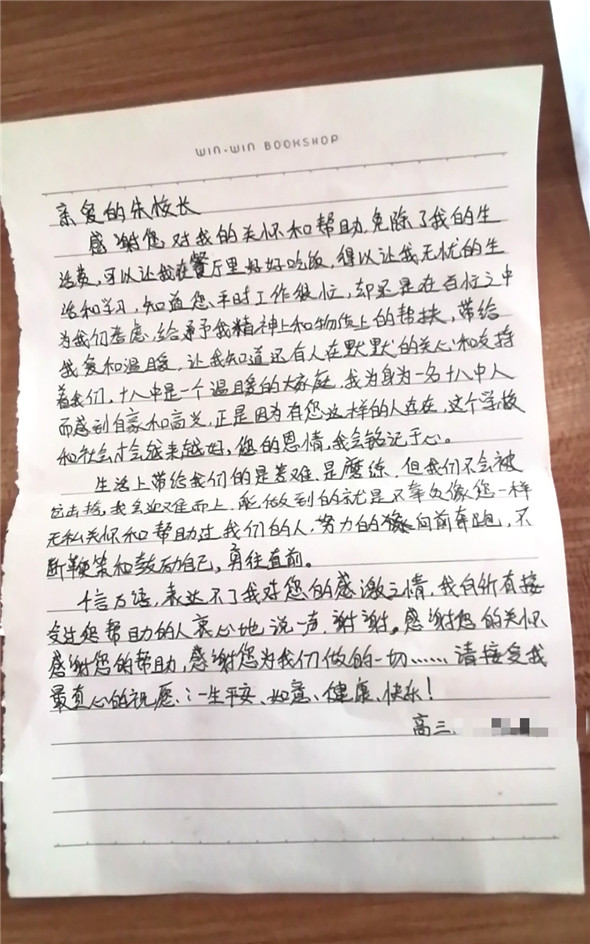 WIN-WIN BOOKSHOP
亲爱的朱校长
感谢您对我的关怀和帮助,免除了我的生
活费,可以让我在餐厅里好好吃饭,得以让我无忧的生
活和学习,知道您平时工作很忙,却还是在百忙之中
为我们考虑,给予我精神上和物质上的帮扶,带给
我爱和温暖,让我知道还有人在默默的关心和支持
着我们,十八中是一个温暖的大家庭,我为身为一名十八中人
而感到自豪和高兴,正是因为有您这样的人存在,这个学校
和社会才会越来越好,您的恩情,我会铭记于心。
生活上带给我们的是苦难,是磨练,但我们不会被
打击垮,我会迎难而上,所做到的就是不辜负像您一样
无私关怀和帮助过我们的人,努力的向前奔跑,不
断鞭策和鼓励自己,勇往直前。
千言万语,表达不了我对您的感激之情,我向所有接
受过您帮助的人衷心地说一声,谢谢。感谢您的关怀
感谢您的帮助,感谢您为我们做的一切……请接受我
最真心的祝愿:一生平安、如意、健康、快乐!
高三